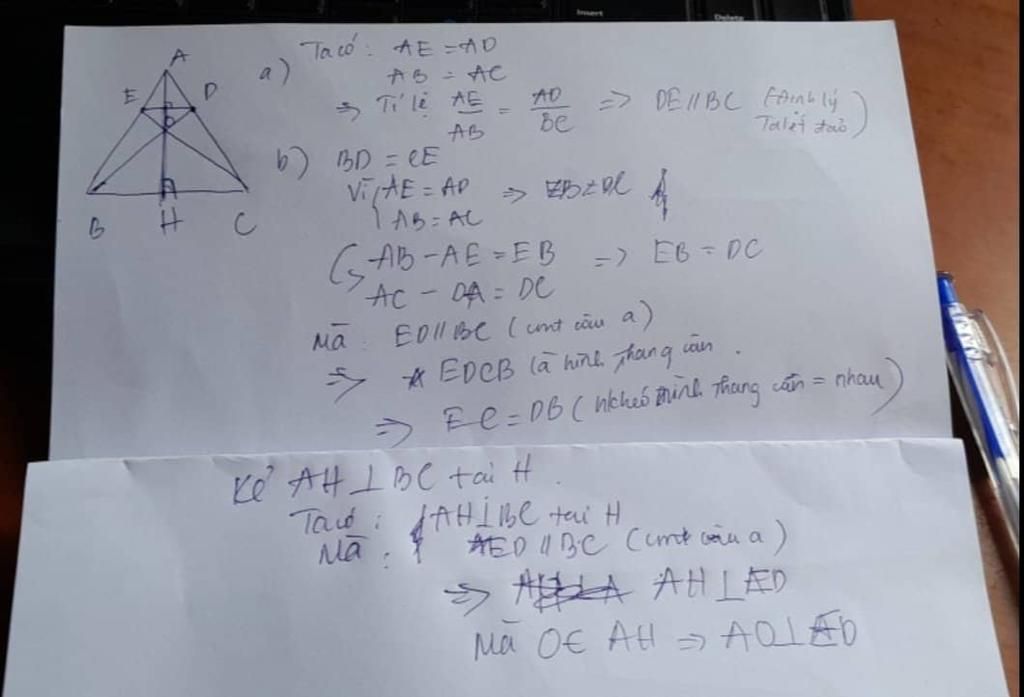 Insert
Delete
A
E
D
O
B
H
C
a) Ta có: AE = AD
AB = AC
=> Tỉ lệ AE/AB = AD/BC => DE // BC (Định lý
Talét đảo)
b) BD = CE
Vì { AE = AD => EB = DC
AB = AC
AB - AE = EB => EB = DC
AC - DA = DC
Mà: ED // BC (cmt câu a)
=> EDCB là hình thang cân.
=> EC = DB ( hình thang cân = nhau)
Kẻ AH ⊥ BC tại H.
Ta có: { AH ⊥ BC tại H
Mà: ED // BC (cmt câu a)
=> AH ⊥ ED
Mà O ∈ AH => AO ⊥ ED